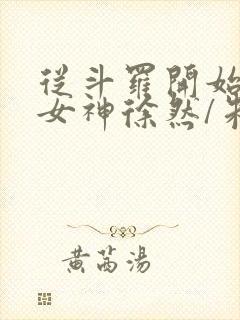 從斗羅開始
女神徐然/
黃芮湯